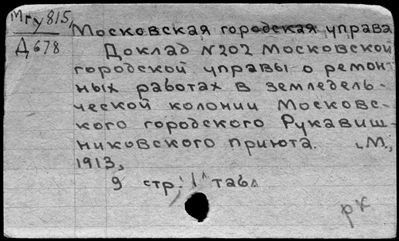 Мгу 815,
Д 678
Московская городская управа
Доклад №202 Московской
городской управы о ремонт
ных работах в земледель-
ческой колонии Московс-
кого городского Рукавиш-
никовского приюта. М.,
1913,
9 стр., 1 табл
рк